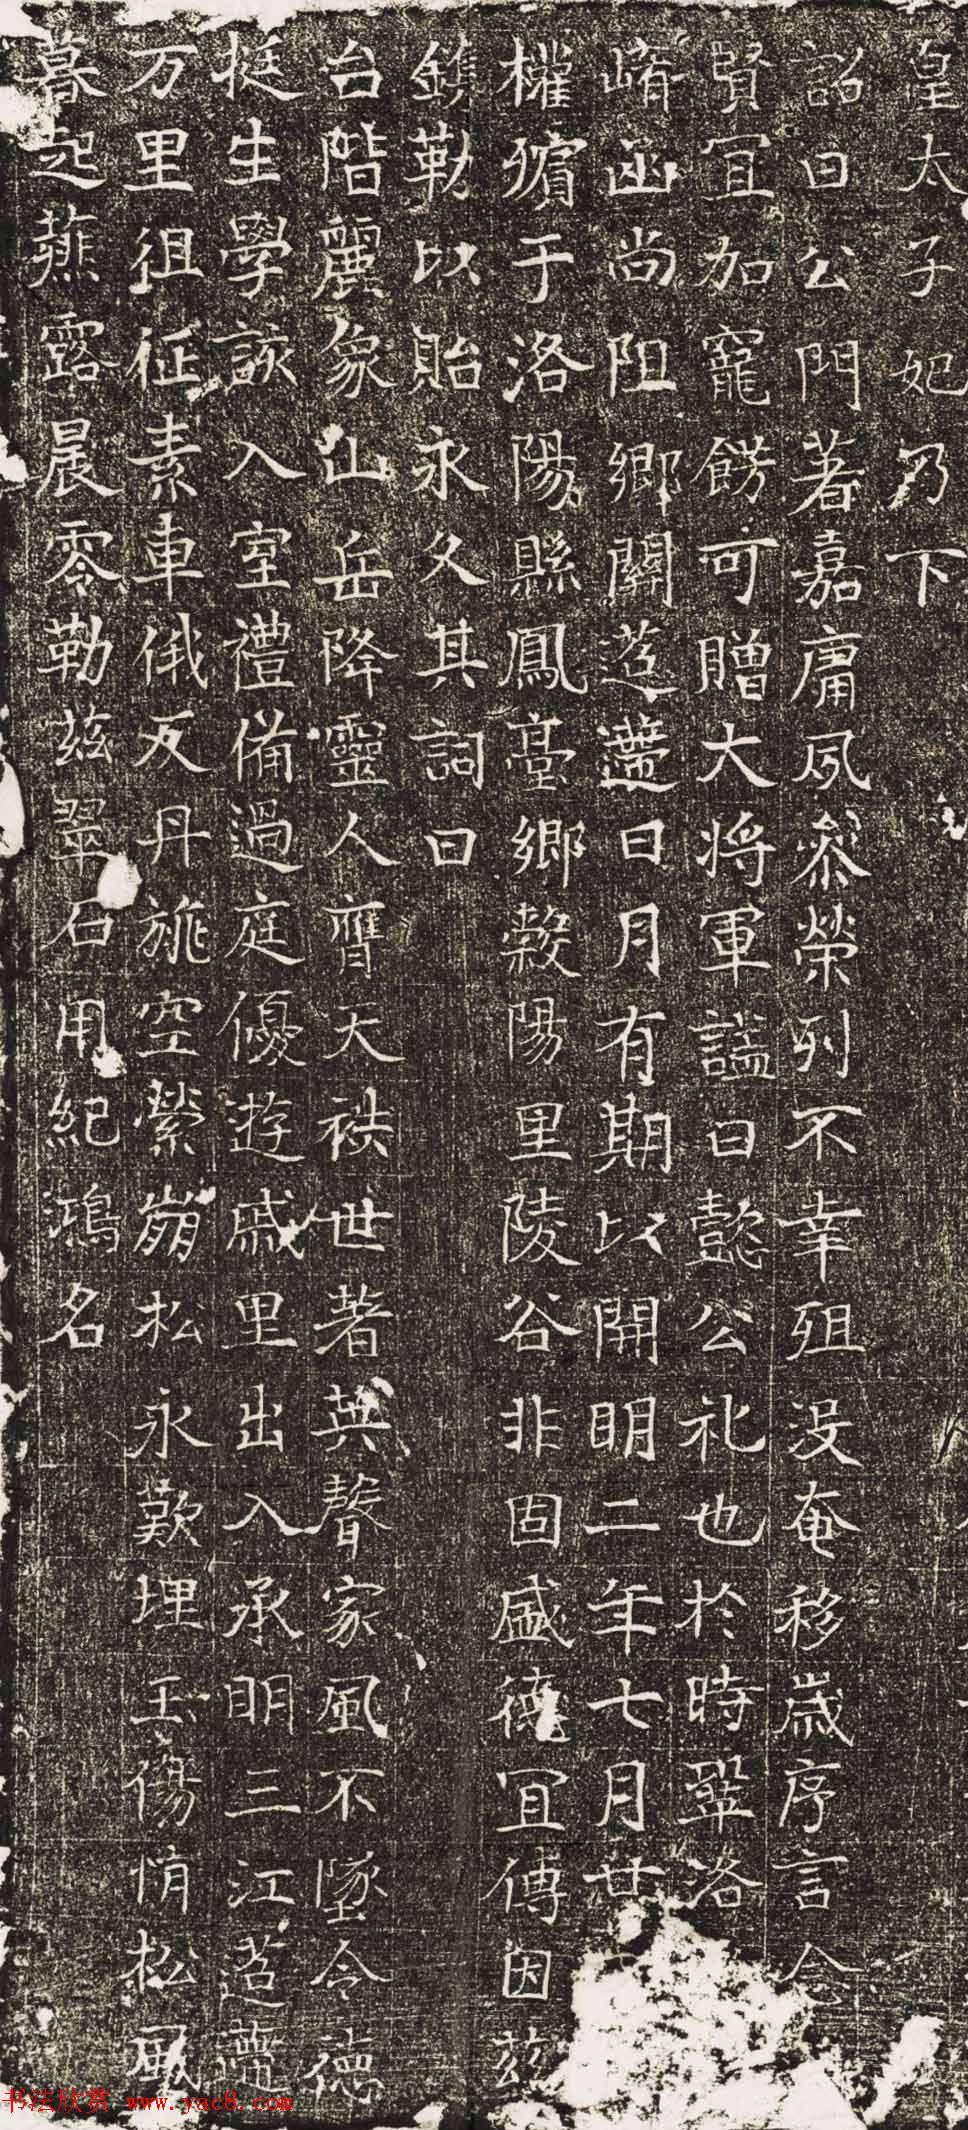 皇太子妃乃下
詔曰公門著嘉庸夙參榮列不幸殂没奄移歲序言念
賢宜加寵餝可贈大将軍諡曰懿公礼也於時鞏洛
崤函尚阻鄉關迢遰日月有期以開明二年七月廿
權殯于洛陽縣鳳臺鄉穀陽里陵谷非固盛德宜傳因茲
鐫勒以貽永久其詞曰
台階麗象山岳降靈人膺天袟世著英聲家風不墜令德
挺生學該入室禮備過庭優遊戚里出入承明三江迢遰
万里徂征素車俄反丹旐空縈崩松永歎埋玉傷情松風
暮起薤露晨零勒茲翠石用紀鴻名
书法欣赏 www.yac8.com